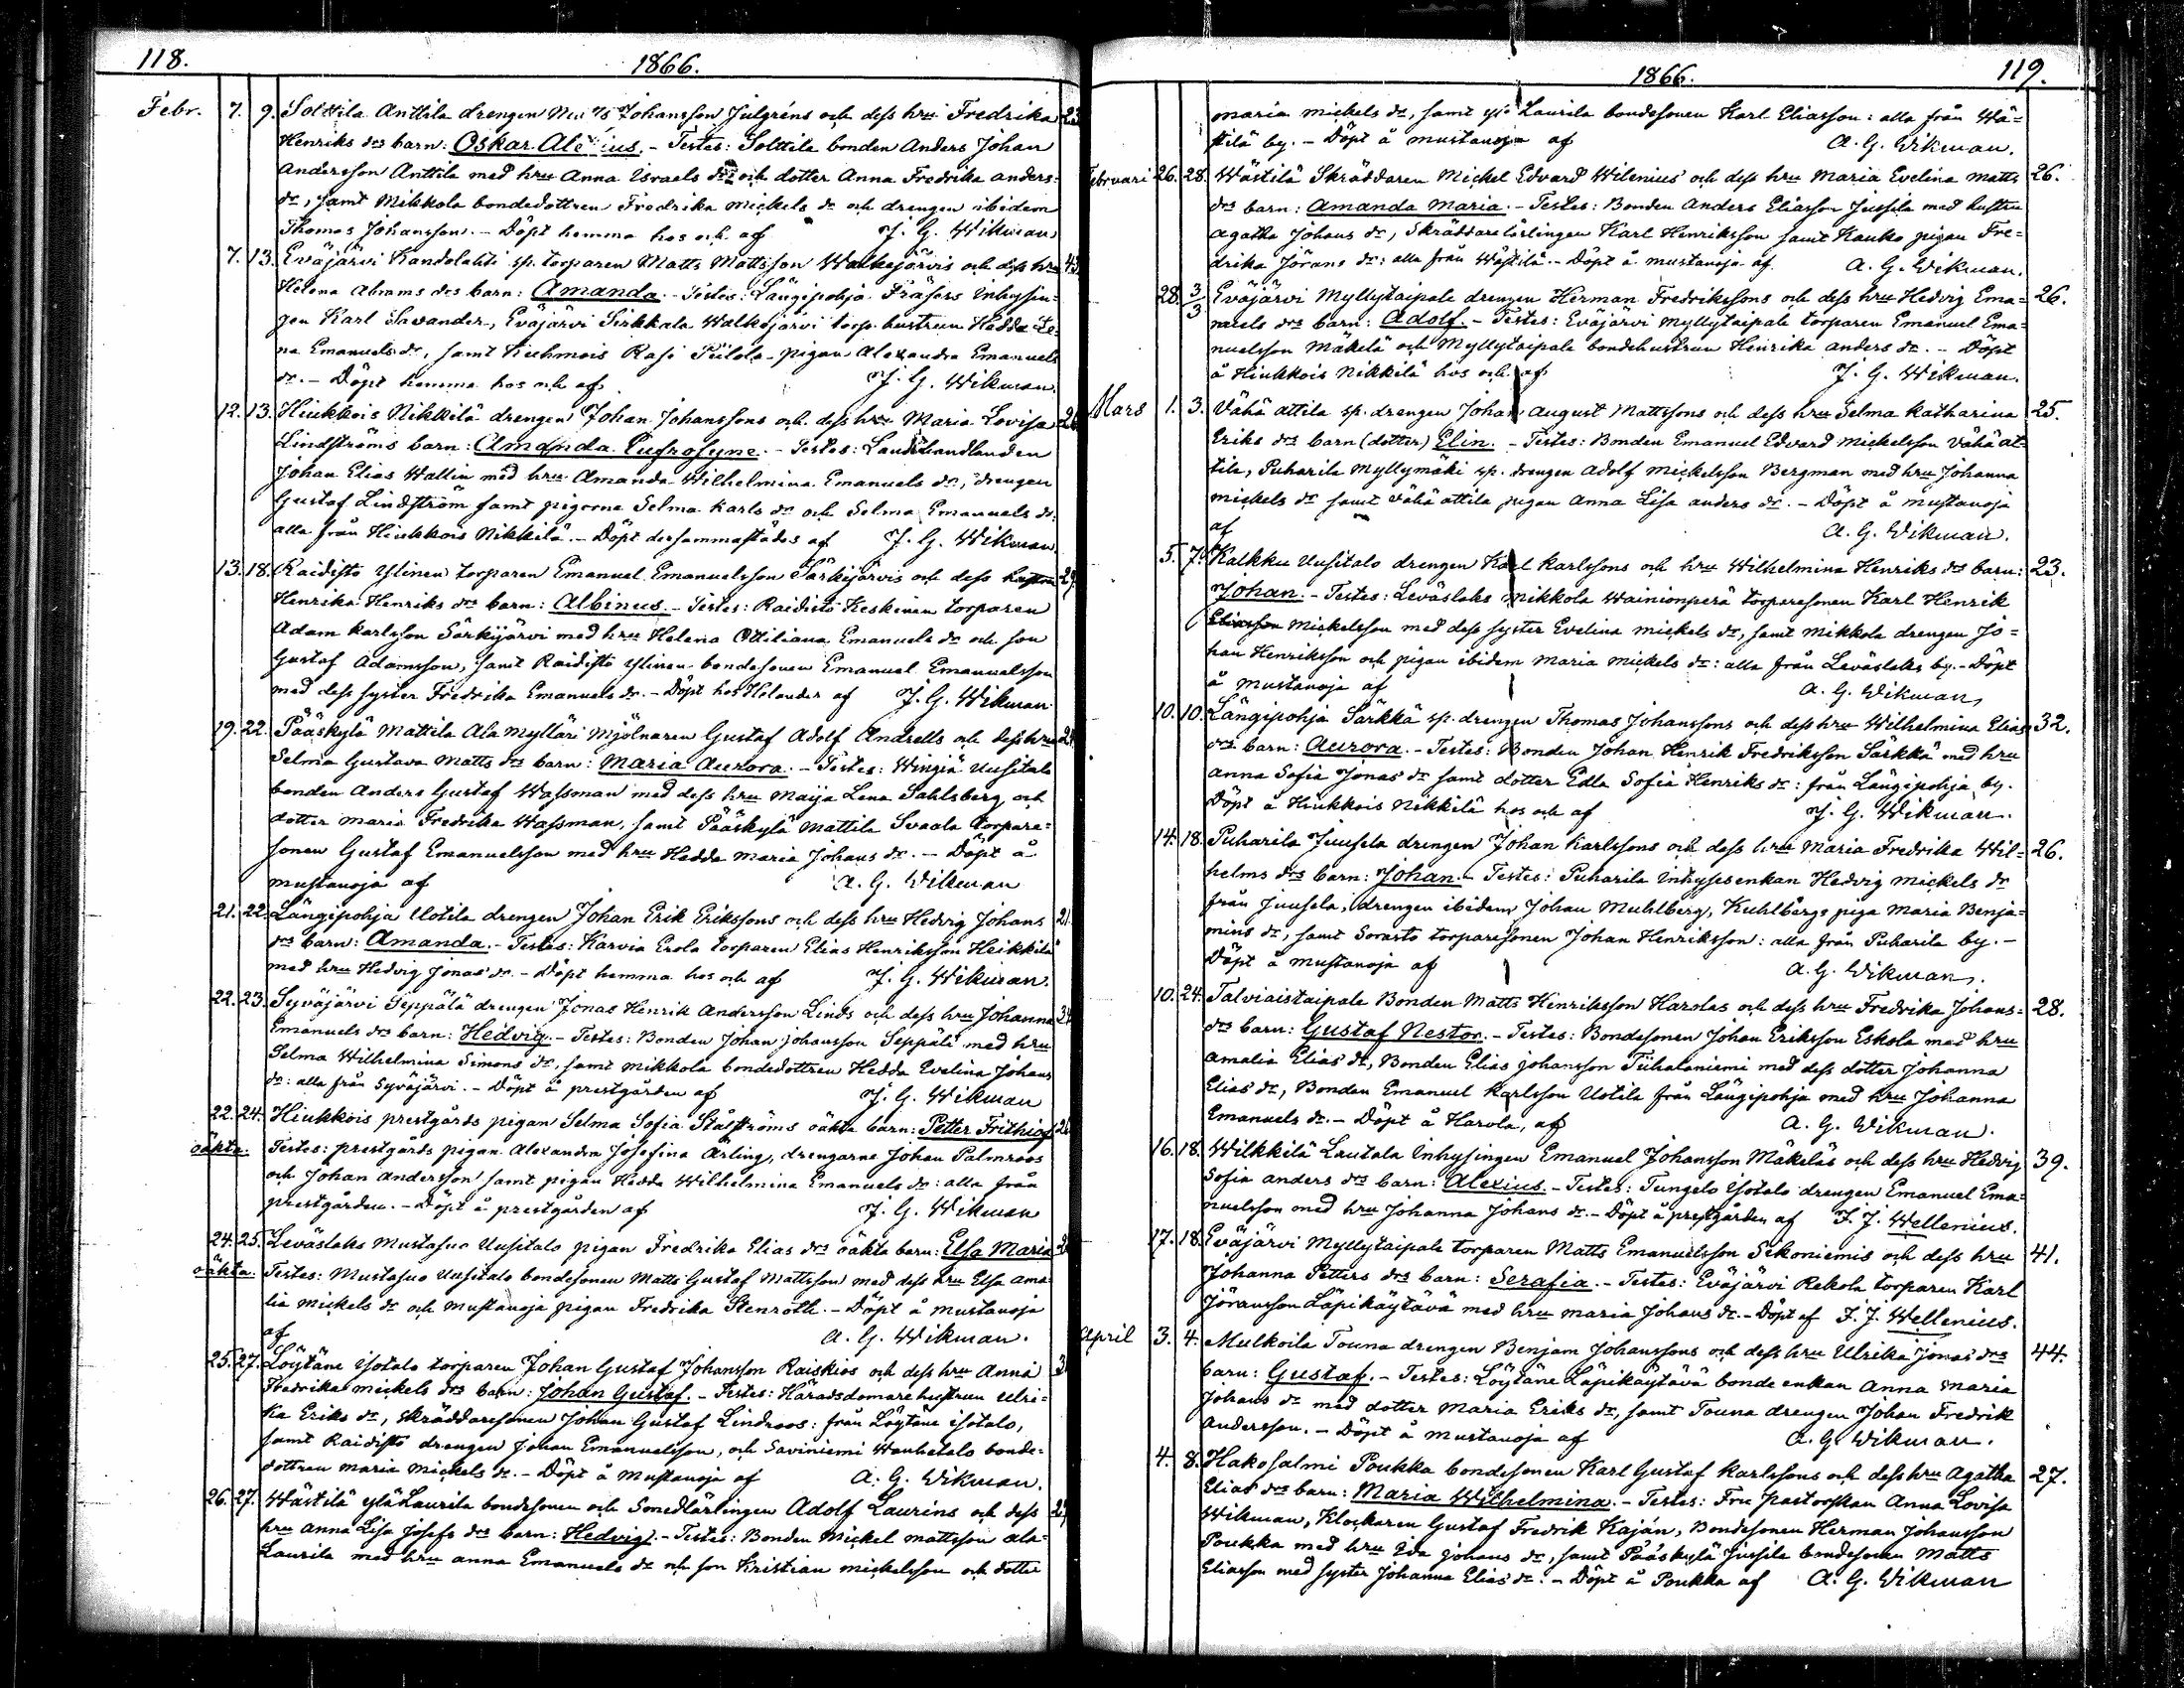 118.
1866.
Febr. 7. 9. Solttila Anttila drengen Johansson Julgréns och dess hru Fredrika 23
Henriks drs barn: Oskar Alexius. - Testes: Solttila bonden Anders Johan
Andersson Anttila med hru Anna Israels dr och dotter Anna Fredrika anders
dr, samt Mikkola bondedottren Fredrika mickels dr och drengen ibidem
Thomas Johansson. - Döpt hemma hos och af J. G. Wikman
7. 13. Eväjärvi Kandolahti sp. torparen Matts Mattsson Walkejärvis och dess hru 43
Helena Abrams drs barn: Amanda. - Testes: Längipohja Fräsers Inhysin=
gen Karl Savander, Eväjärvi Sirkkala Walkejärvi torp. hustrun Hedda Le=
na Emanuels dr, samt Kuhmois Rasi Piilola-pigan Alexandra Emanuels
dr. - Döpt hemma hos och af J. G. Wikman.
12. 13. Hiukkois Nikkilä drengen Johan Johanssons och dess hru Maria Lovisa
Lindströms barn: Amanda Eufrosyne. - Testes: Landthandlanden
Johan Elias Wallin med hru Amanda Wilhelmina Emanuels dr, drengen
Gustaf Lindström samt pigorna Selma Karls dr och Selma Emanuels dr:
alla från Hiukkois Nikkilä. - Döpt dersammastädes af J. G. Wikman.
13. 18. Raidisto Ylinen torparen Emanuel Emanuelsson Särkijärvis och dess hustru 29
Henrika Henriks drs barn: Albinus. - Testes: Raidisto Keskinen torparen
Adam Karlsson Särkijärvi med hru Helena Ottiliana Emanuels dr och son
Gustaf Adamsson, samt Raidisto Ylinen bondesonen Emanuel Emanuelsson
med dess syster Fredrika Emanuels dr. - Döpt hos Helander af J. G. Wikman
19. 22. Pääskylä Mattila Ala mylläri Mjölnaren Gustaf Adolf Andrells och dess hru
Selma Gustava Matts drs barn: Maria Aurora. - Testes: Wingiä Uusitalo
bonden Anders Gustaf Wassman med dess hru Maija Lena Sahlsberg och
dotter maria Fredrika Wassman, samt Pääskylä Mattila Svaala torpare=
sonen Gustaf Emanuelsson med hru Hedda Maria Johans dr. - Döpt å
mustanoja af A. G. Wikman
21. 22. Längipohja Uotila drengen Johan Erik Erikssons och dess hru Hedvig Johans 21.
drs barn: Amanda. - Testes: Karvia Erola torparen Elias Henriksson Heikkilä
med hru Hedvig Jonas dr. - Döpt hemma hos och af J. G. Wikman.
22. 23. Syväjärvi Seppälä drengen Jonas Henrik Andersson Linds och dess hru Johanna 34
Emanuels drs barn: Hedvig. - Testes: Bonden Johan Johansson Seppälä med hru
Selma Wilhelmina Simons dr, samt mikkola bondedottren Hedda Evelina Johans
dr: alla från Syväjärvi. - Döpt å prestgården af J. G. Wikman
22. 24. Hiukkois prestgårds pigan Selma Sofia Stålströms oäkta barn: Petter Frithiof
oäkta. Testes: prestgårds pigan Alexandra Josefina Ärling, drengarne Johan Palmroos
och Johan andersson samt pigan Hedda Wilhelmina Emanuels dr: alla från
prestgården. - Döpt å prestgården af J. G. Wikman
24. 25. Leväslaks Mustasuo Uusitalo pigan Fredrika Elias drs oäkta barn: Elsa Maria
oäkta. Testes: Mustasuo Uusitalo bondesonen Matts Gustaf Mattsson med dess hru Elsa Ama=
lia Mickels dr och Mustanoja pigan Fredrika Stenroth. - Döpt å mustanoja
af A. G. Wikman.
25. 27. Löytäne Isotalo torparen Johan Gustaf Johansson Raiskios och dess hru Anna
Fredrika mickels drs barn: Johan Gustaf. - Testes: Häradsdomare hustrun Ulri=
ka Eriks dr, skräddaresonen Johan Gustaf Lindroos: från Löytäne isotalo,
samt Raidisto drengen Johan Emanuelsson, och Saviniemi Wanhatalo bonde=
dottren maria mickels dr. - Döpt å Mustanoja af A. G. Wikman.
26. 27. Wästilä ylä Laurila bondesonen och Smedlärlingen Adolf Laurins och dess
hru Anna Lisa Josefs drs barn: Hedvig. - Testes: Bonden Mickel mattsson ala=
Laurila med hru anna Emanuels dr och son Kristian mickelsson och dotter
1866.
119.
maria mickels dr, samt ylä Laurila bondesonen Karl Eliasson: alla från Wä=
stilä by. - Döpt å mustanoja af A. G. Wikman.
Februari 26. 28. Wästilä Skräddaren Mickel Edvard Wilenius och dess hru Maria Evelina Matts 26.
drs barn: Amanda Maria. - Testes: Bonden Anders Eliasson Jussila med hustru
Agatha Johans dr, Skräddarelärlingen Karl Henriksson samt Kauko pigan Fre=
drika Jörans dr: alla från Wästilä. - Döpt å mustanoja af A. G. Wikman.
28. 3/3 Eväjärvi Myllytaipale drengen Herman Fredrikssons och dess hru Hedvig Ema= 26.
nuels drs barn: Adolf. - Testes: Eväjärvi Myllytaipale torparen Emanuel Ema=
nuelsson Mäkelä och Myllytaipale bondehustrun Henrika anders dr. - Döpt
å Hiukkois Nikkilä hos och af J. G. Wikman.
Mars 1. 3. Vähä attila sp. drengen Johan August Mattssons och dess hru Selma Katharina 25.
Eriks drs barn (dotter) Elin. - Testes: Bonden Emanuel Edvard Mickelsson Vähä at=
tila, Puharila Myllymäki sp. drengen Adolf Mickelsson Bergman med hru Johanna
mickels dr samt vähä attila pigan Anna Lisa anders dr. - Döpt å mustanoja
af A. G. Wikman.
5. 7. Kalkku Uusitalo drengen Karl Karlssons och hru Wilhelmina Henriks drs barn: 23.
Johan. - Testes: Leväslaks Mikkola Wainionperä torparesonen Karl Henrik
Eliasson Mickelsson med dess syster Evelina mickels dr, samt mikkola drengen Jo=
han Henriksson och pigan ibidem maria mickels dr: alla från Leväslaks by. - Döpt
å Mustanoja af A. G. Wikman,
10. 10. Längipohja Särkkä sp. drengen Thomas Johanssons och dess hru Wilhelmina Elias 32.
drs barn: Aurora. - Testes: Bonden Johan Henrik Fredriksson Särkkä med hru
Anna Sofia Jonas dr samt dotter Edla Sofia Henriks dr: från Längipohja by.
Döpt å Hiukkois Nikkilä hos och af J. G. Wikman.
14. 18. Puharila Juusela drengen Johan Karlssons och dess hru Maria Fredrika Wil= 26.
helms drs barn: Johan. - Testes: Puharila Inhyses enkan Hedvig Mickels dr
från Juusela, drengen ibidem Johan Muhlberg, Kuhlbergs piga Maria Benja=
mins dr, samt Sorasto torparesonen Johan Henriksson: alla från Puharila by. -
Döpt å Mustanoja af A. G. Wikman.
10. 24. Talviaistaipale Bonden Matts Henriksson Harolas och dess hru Fredrika Johans= 28.
drs barn: Gustaf Nestor. - Testes: Bondesonen Johan Eriksson Eskola med hru
Amalia Elias dr, Bonden Elias Johansson Tiihalaniemi med dess dotter Johanna
Elias dr, Bonden Emanuel Karlsson Uotila från Längipohja med hru Johanna
Emanuels dr. - Döpt å Harola, af A. G. Wikman.
16. 18. Wilkkilä Lautala Inhysingen Emanuel Johansson Mäkeläs och dess hru Hedvig 39.
Sofia anders drs barn: Alexius. - Testes: Tungelo Ylotalo drengen Emanuel Ema=
nuelsson med hru Johanna Johans dr. - Döpt å prestgården af F. J. Wellenius.
17. 18. Eväjärvi Myllytaipale torparen Matts Emanuelsson Sekoniemis och dess hru 41.
Johanna Petters drs barn: Serafia. - Testes: Eväjärvi Rekola torparen Karl
Jöransson Läpikäytävä med hru Maria Johans dr. - Döpt af F. J. Wellenius.
April 3. 4. Mulkoila Touna drengen Benjam Johanssons och dess hru Ulrika Jonas drs 44.
barn: Gustaf. - Testes: Löytäne Läpikäytävä bonde enkan Anna Maria
Johans dr med dotter Maria Eriks dr, samt Touna drengen Johan Fredrik
Andersson. - Döpt å Mustanoja af A. G. Wikman.
4. 8. Hakosalmi Poukka bondesonen Karl Gustaf Karlssons och dess hru Agatha 27.
Elias drs barn: Maria Wilhelmina. - Testes: Fru pastorskan Anna Lovisa
Wikman, Klockaren Gustaf Fredrik Kaján, Bondesonen Herman Johansson
Poukka med hru Eva Johans dr, samt Pääskylä Jussila bondesonen Matts
Eliasson med syster Johanna Elias dr. - Döpt å Poukka af A. G. Wikman